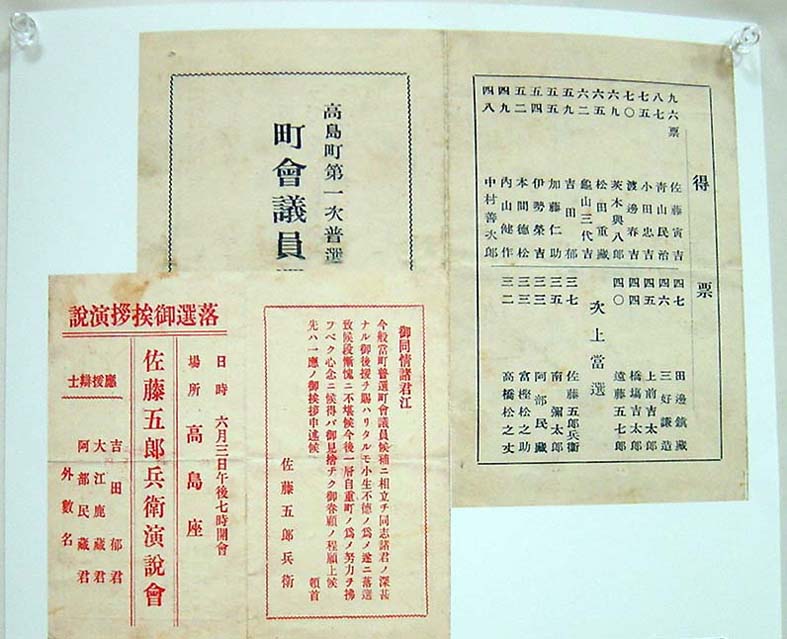 得票
九六票 佐藤寅吉
八七 青山民治
七五 小田忠吉
七〇 渡邊春吉
六九 茨木與八郎
六五 松田重藏
六二 龜山三代吉
五九 吉田郁
五五 加藤仁助
五四 伊勢榮吉
五二 本間德松
四九 內山健作
四八 中村善次郎
四七 田邊鎮藏
四六 三好謙造
四五 上前吉太郎
四四 橋塲吉太郎
四〇 遠藤五七郎
以上當選
三七 佐藤五郎兵衛
三五 南彌太郎
三三 阿部民藏
三三 富樫松之助
三二 高橋松之丈
高島町第一次普選
町會議員
御同情諸君江
今般當町普選町會議員候補ニ相立チ同志諸君ノ深甚
ナル御後援ヲ賜ハリタルモ小生不德ノ爲メ遂ニ落選
致候段慚愧ニ不堪候今後一層自重町ノ爲メ努力ヲ拂
フベク心念ニ候得バ御見捨チク御眷顧ノ程願上候
先ハ一應ノ御挨拶申述候 頓首
佐藤五郎兵衛
落選御挨拶演說
日時 六月三日午後七時開會
場所 高島座
佐藤五郎兵衛演說會
應援辯士
吉田郁君
大江鹿藏君
阿部民藏君
外數名